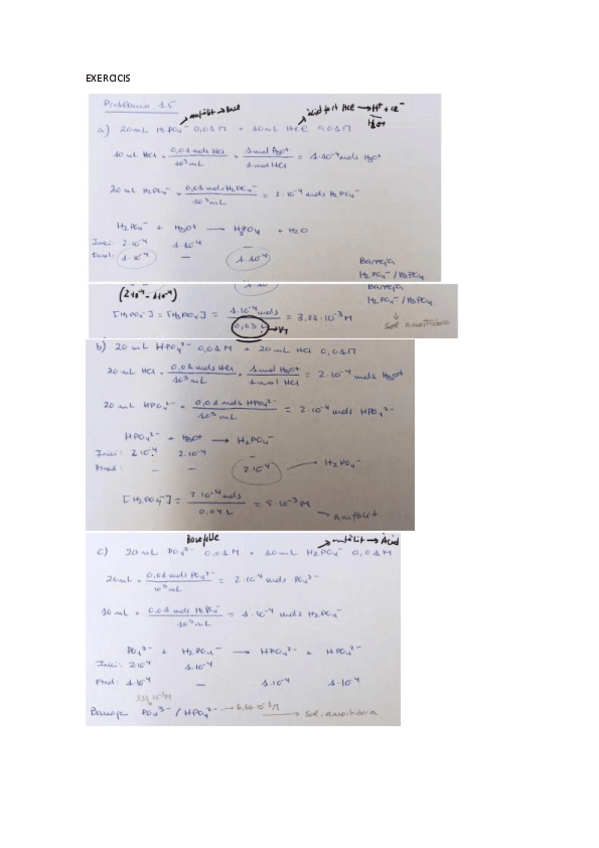 EXERCICIS
Problema 15
amfòlit → Base
àcid fort HCl → H⁺ + Cl⁻
H₃O⁺
a) 20 mL H₂PO₄⁻ 0,01M + 10mL HCl 0,01M
10 mL HCl · 0,01 mols HCl / 10³ mL · 1 mol H₃O⁺ / 1 mol HCl = 1·10⁻⁴ mols H₃O⁺
20 mL H₂PO₄⁻ · 0,01 mols H₂PO₄⁻ / 10³ mL = 2·10⁻⁴ mols H₂PO₄⁻
H₂PO₄⁻ + H₃O⁺ → H₃PO₄ + H₂O
Inici: 2·10⁻⁴ 1·10⁻⁴ —
Final: 1·10⁻⁴ — 1·10⁻⁴
Barreja
H₂PO₄⁻/H₃PO₄
(2·10⁻⁴ - 1·10⁻⁴)
Barreja
H₂PO₄⁻/H₃PO₄
[H₂PO₄⁻] = [H₃PO₄] = 1·10⁻⁴ mols / 0,03 L = 3,33·10⁻³ M
→ V_T
Sol. amortidora
b) 20 mL HPO₄²⁻ 0,01M + 20 mL HCl 0,01M
20 mL HCl · 0,01 mols HCl / 10³ mL · 1 mol H₃O⁺ / 1 mol HCl = 2·10⁻⁴ mols H₃O⁺
20 mL HPO₄²⁻ · 0,01 mols HPO₄²⁻ / 10³ mL = 2·10⁻⁴ mols HPO₄²⁻
HPO₄²⁻ + H₃O⁺ → H₂PO₄⁻
Inici: 2·10⁻⁴ 2·10⁻⁴ —
Final: — — 2·10⁻⁴ H₂PO₄⁻
[H₂PO₄⁻] = 2·10⁻⁴ mols / 0,04 L = 5·10⁻³ M
→ Amfòlit
Base feble
amfòlit → Àcid
c) 20 mL PO₄³⁻ 0,01M + 10mL H₂PO₄⁻ 0,01M
20mL · 0,01 mols PO₄³⁻ / 10³ mL = 2·10⁻⁴ mols PO₄³⁻
10 mL · 0,01 mols H₂PO₄⁻ / 10³ mL = 1·10⁻⁴ mols H₂PO₄⁻
PO₄³⁻ + H₂PO₄⁻ → HPO₄²⁻ + HPO₄²⁻
Inici: 2·10⁻⁴ 1·10⁻⁴
Final: 1·10⁻⁴ — 1·10⁻⁴ 1·10⁻⁴
3,33·10⁻³M
Barreja PO₄³⁻ / HPO₄²⁻ → 6,66·10⁻³M → Sol. amortidora